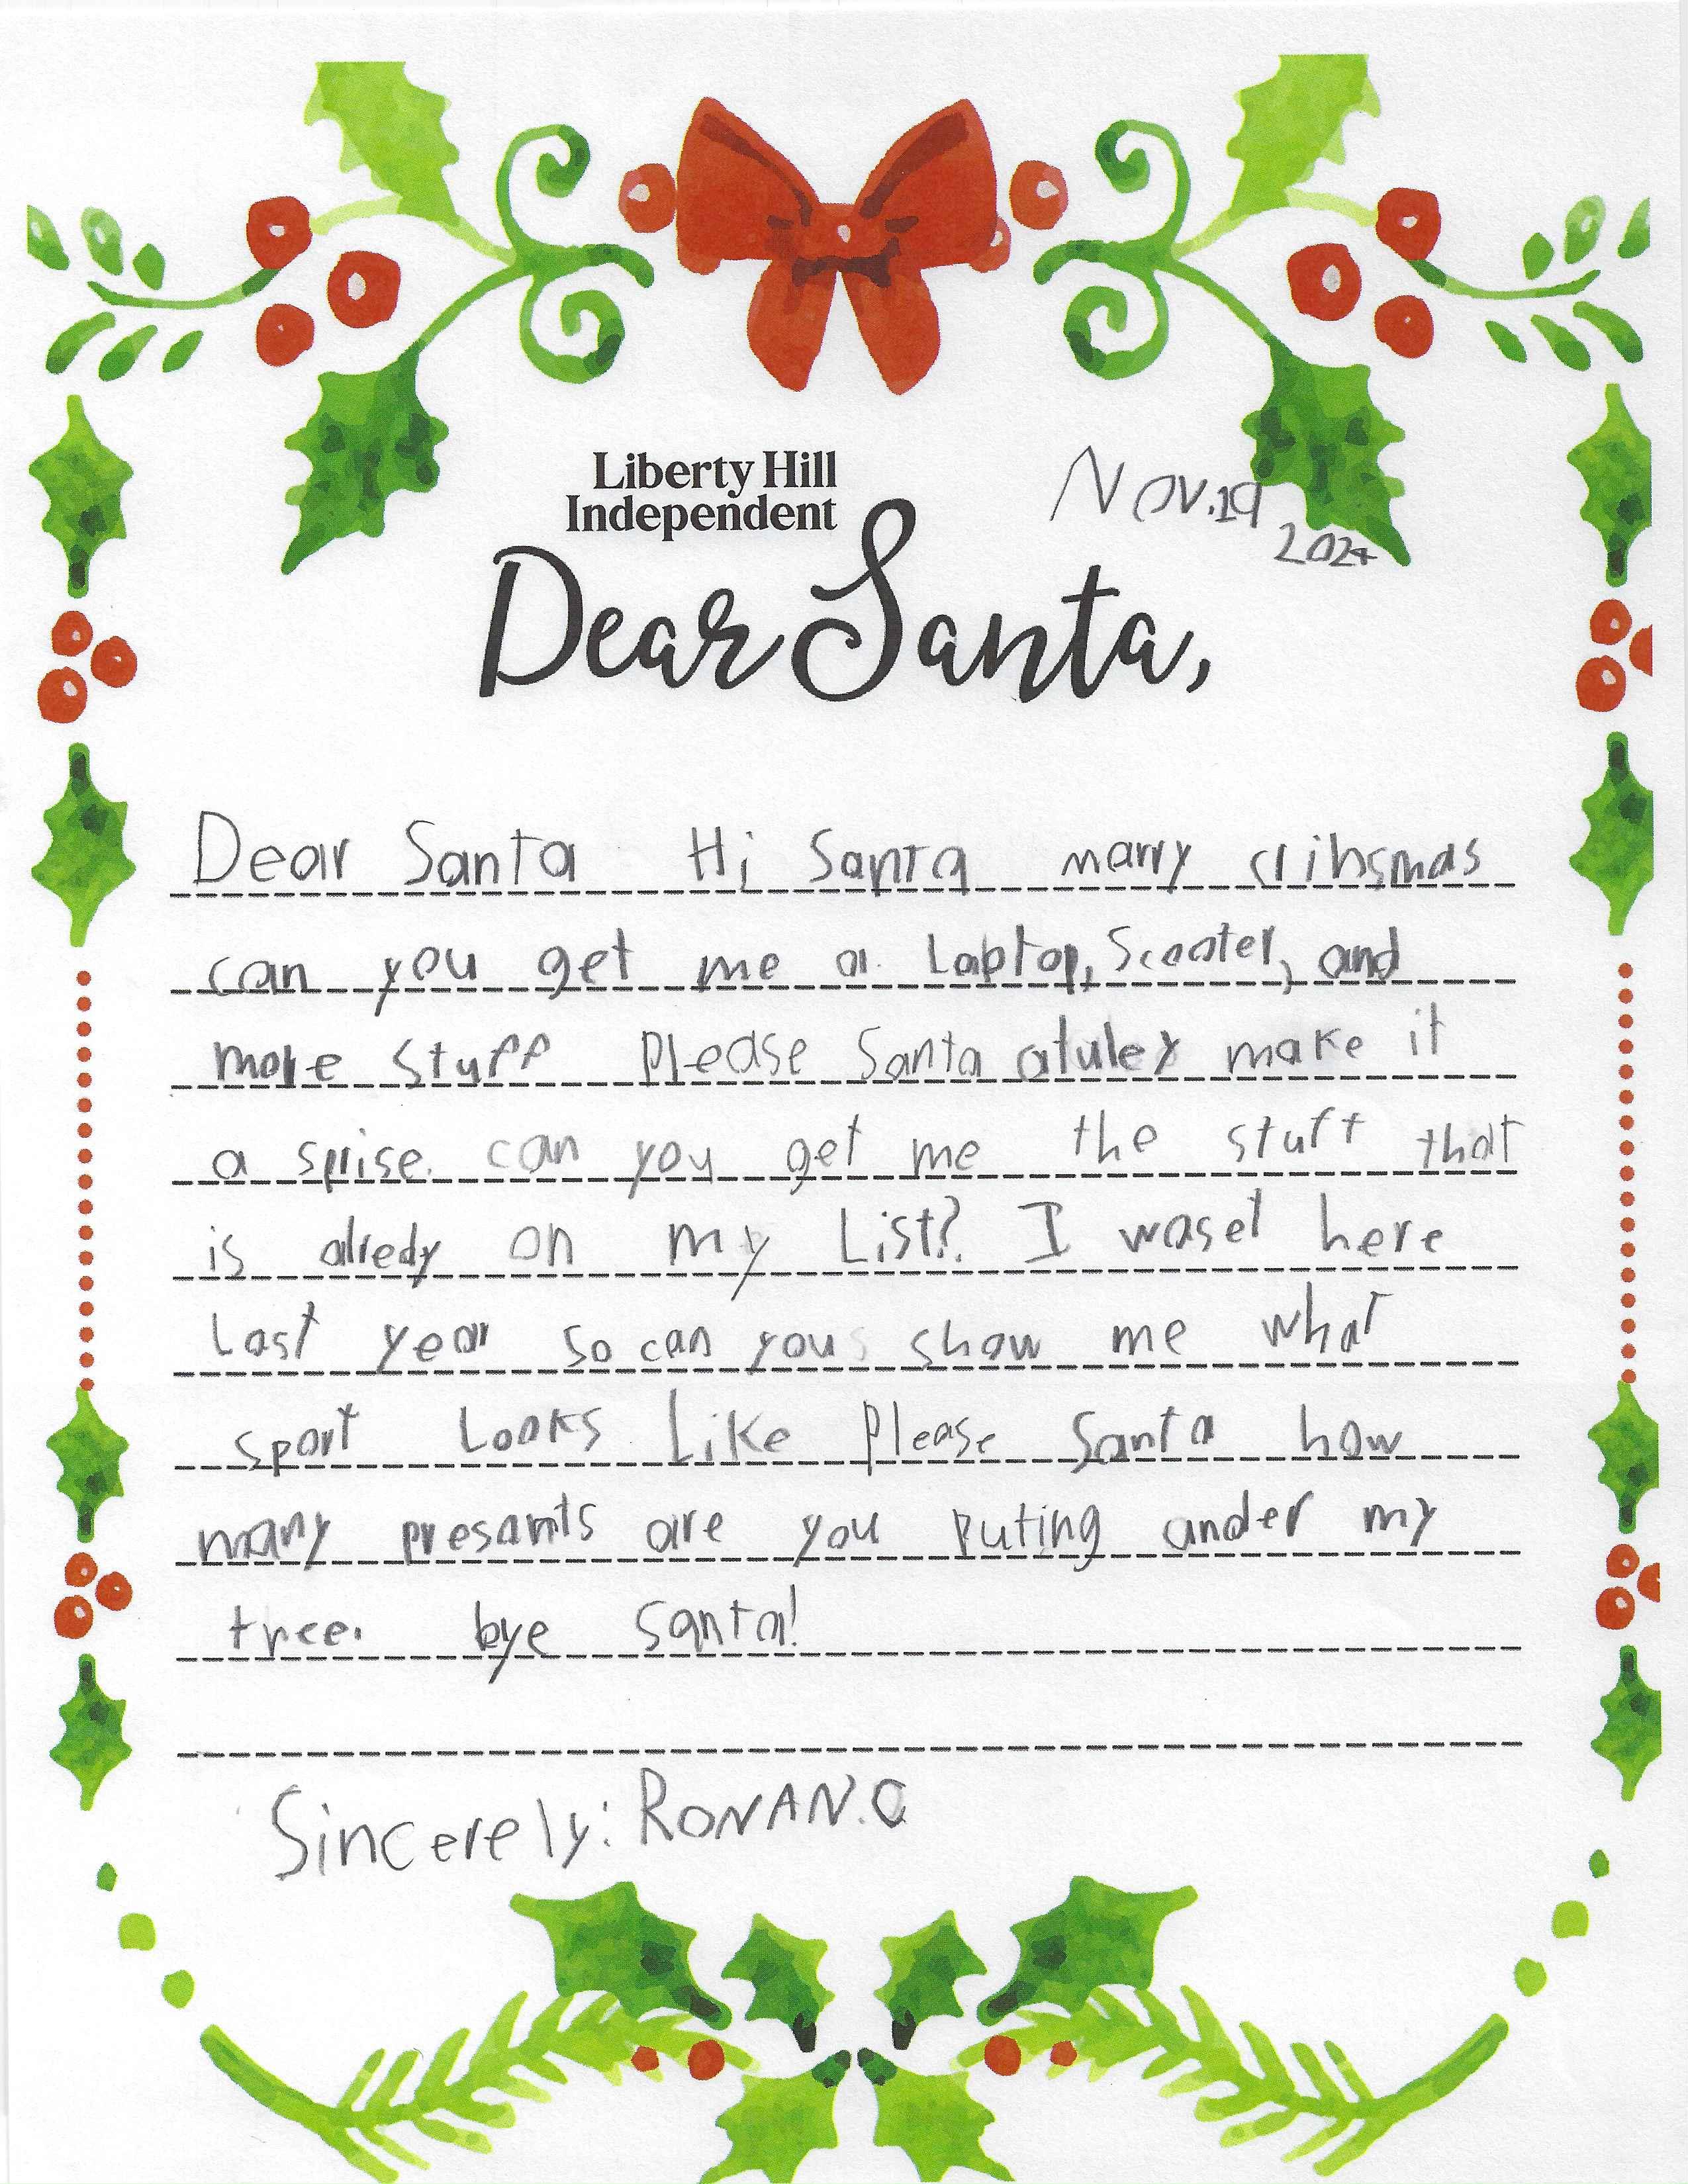 Liberty Hill
Independent
Nov.19
2024
Dear Santa,
Dear Santa Hi Santa marry crihsmas
can you get me a Labtop, Scooter, and
more stuff please Santa atuley make it
a sprise. can you get me the stuff that
is alredy on my List? I waset here
Last year so can you show me what
sport Looks Like please Santa how
many presants are you puting ander my
tree. bye Santa!
Sincerely: RONAN.O